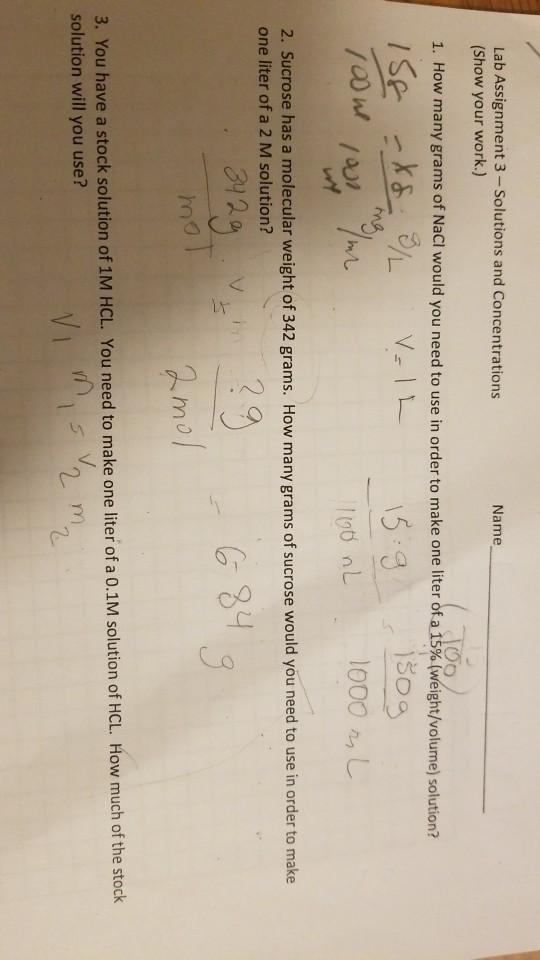 Lab Assignment 3 – Solutions and Concentrations
Name
(Show your work.)
1. How many grams of NaCl would you need to use in order to make one liter of a 15% (weight/volume) solution?
g/L V = 1 L
15 g = 150 g
mg/ml
1000 mL
2. Sucrose has a molecular weight of 342 grams. How many grams of sucrose would you need to use in order to make
one liter of a 2 M solution?
342g ? g = 684 g
mol 2 mol
3. You have a stock solution of 1M HCL. You need to make one liter of a 0.1M solution of HCL. How much of the stock
solution will you use?
V1 m1 = V2 m2